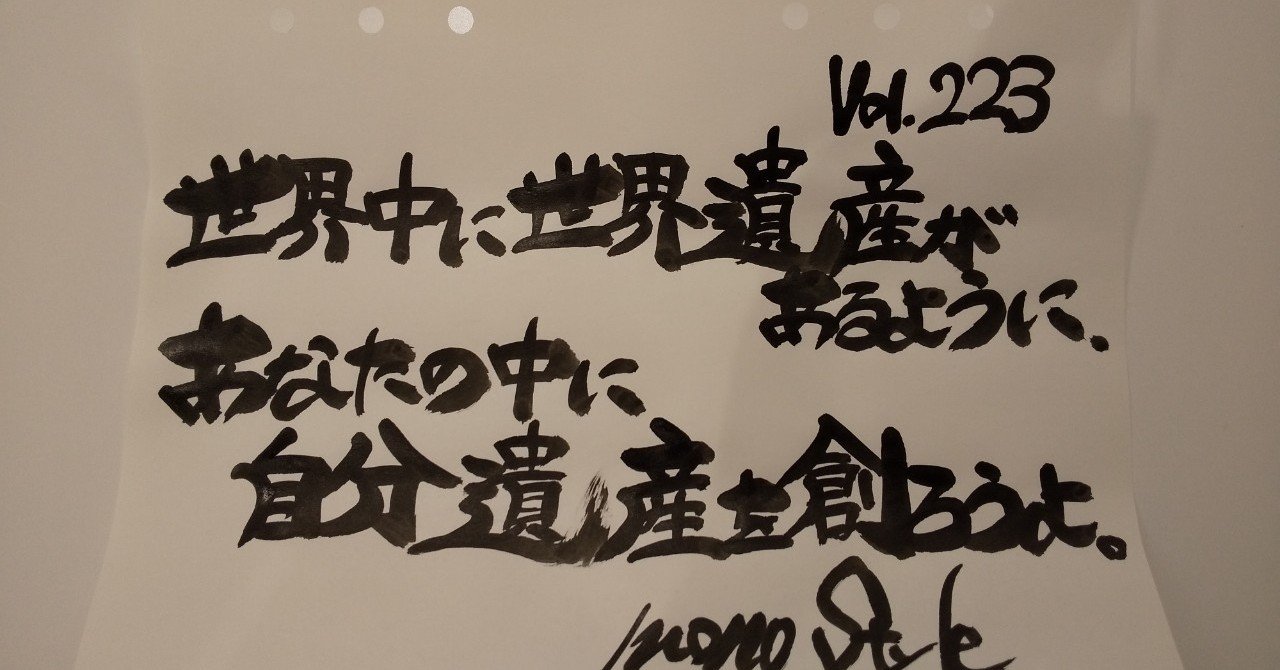 Vol.223
世界中に世界遺産が
あるように、
あなたの中に
自分遺産を創ろうよ。
Style